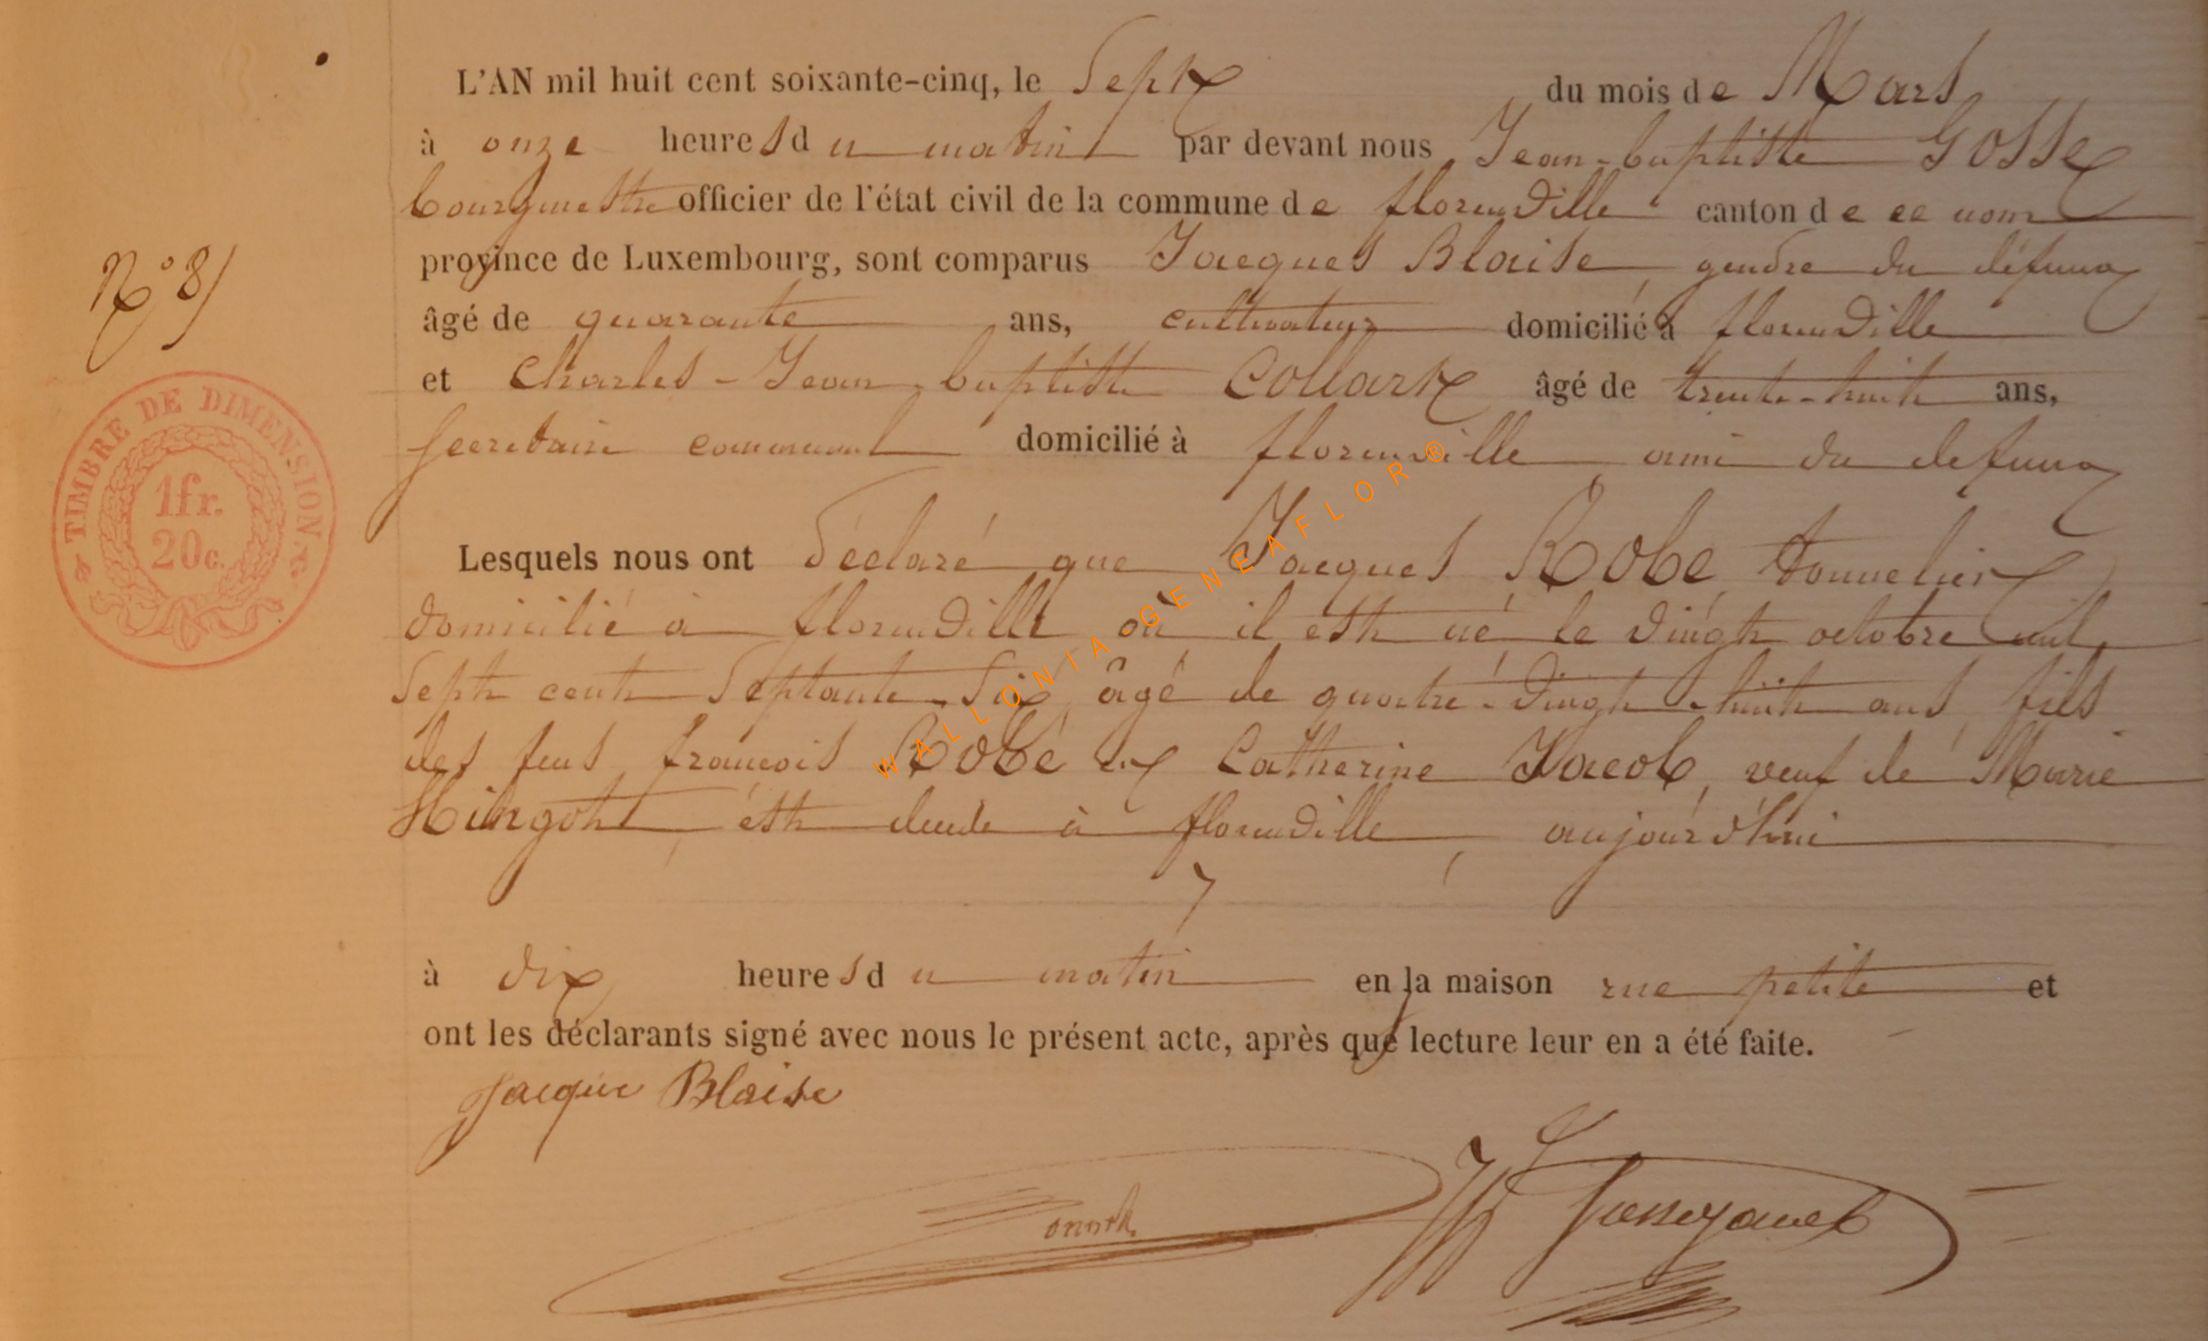 L'AN mil huit cent soixante-cinq, le Sept du mois de Mars
à onze heures du matin par devant nous Jean-baptiste Gosse
bourgmestre officier de l'état civil de la commune de florenville canton de ce nom
province de Luxembourg, sont comparus Jacques Blaise, gendre du défunt
N° 8
âgé de quarante ans, cultivateur domicilié à florenville
et Charles-Jean-baptiste Collart âgé de trente-huit ans,
secrétaire communal domicilié à florenville ami du defunt
TIMBRE DE DIMENSION.
1fr.
20c.
Lesquels nous ont déclaré que Jacques Robe, tonnelier
domicilié à florenville où il est né le vingt octobre mil
sept cent septante-six, âgé de quatre-vingt-huit ans, fils
des feus françois Robe et Catherine Jacob, veuf de Marie
est décédé à florenville aujourd'hui
à dix heures du matin en la maison rue petite et
ont les déclarants signé avec nous le présent acte, après que lecture leur en a été faite.
Jacques Blaise
WALLONIA GENEAFLOR ®